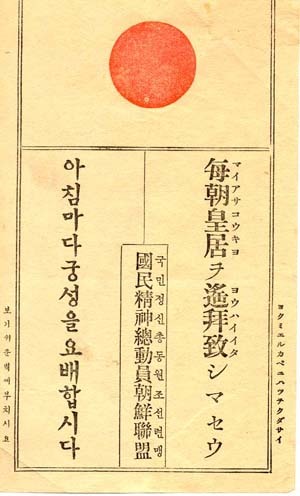 ヨクミエルカベニハツテクダサイ
マイアサコウキヨ ヨウハイイタ
每朝皇居ヲ遙拜致シマセウ
국민정신총동원조선련맹
國民精神總動員朝鮮聯盟
아침마다궁성을요배합시다
보기쉬운벽에부치시요